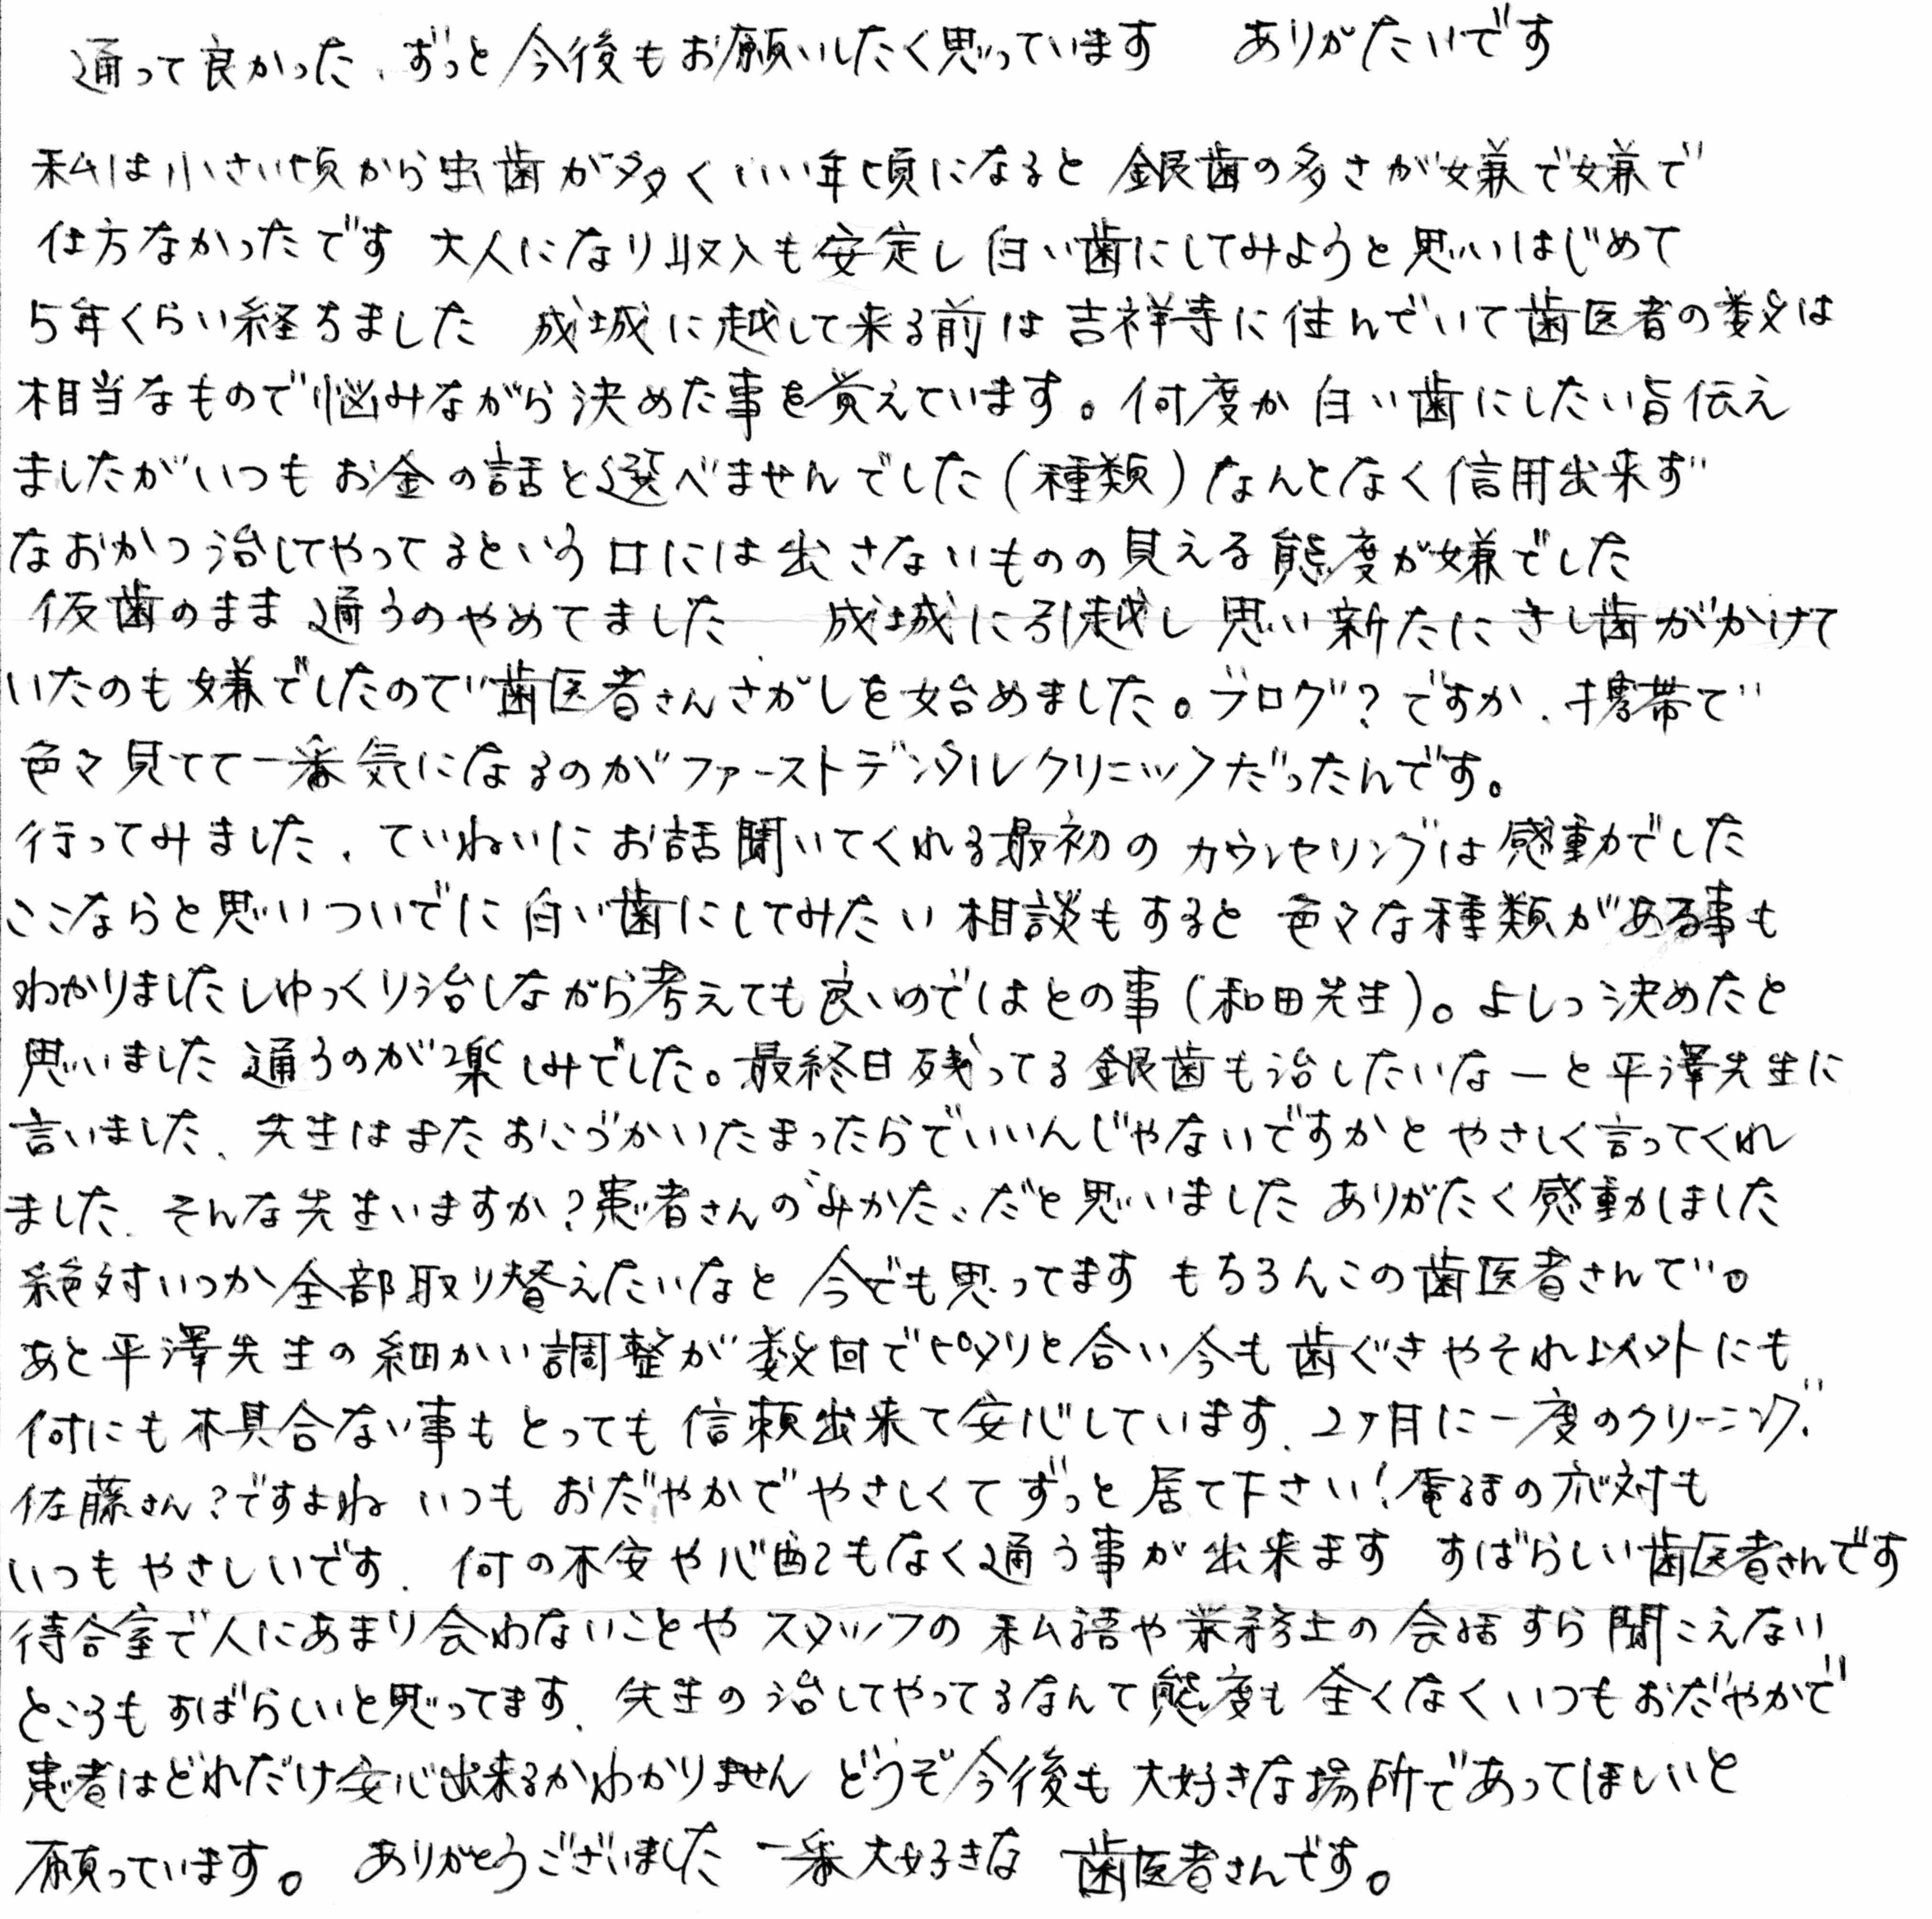 通って良かった、ずっと今後もお願いしたく思っています　ありがたいです
私は小さい頃から虫歯が多くいい年頃になると銀歯の多さが嫌で嫌で
仕方なかったです 大人になり収入も安定し白い歯にしてみようと思いはじめて
5年くらい経ちました　成城に越して来る前は吉祥寺に住んでいて歯医者の数は
相当なもので悩みながら決めた事を覚えています。何度か白い歯にしたい旨伝え
ましたがいつもお金の話と選べませんでした(種類)なんとなく信用出来ず
なおかつ治してやってるという口には出さないものの見える態度が嫌でした
仮歯のまま通うのやめてました、成城に引越し思い新たにさし歯がかけて
いたのも嫌でしたので歯医者さんさがしを始めました。ブログ?ですか、携帯で
色々見てて一番気になるのがファーストデンタルクリニックだったんです。
行ってみました、ていねいにお話聞いてくれる最初のカウンセリングは感動でした
ここならと思いついでに白い歯にしてみたい相談もすると色々な種類がある事も
わかりましたしゆっくり治しながら考えても良いのではとの事(和田先生)。よしっ決めたと
思いました通うのが楽しみでした。最終日残ってる銀歯も治したいなーと平澤先生に
言いました、先生はまたおこづかいたまったらでいいんじゃないですかとやさしく言ってくれ
ました、そんな先生いますか?患者さんの"みかた"だと思いましたありがたく感動しました
絶対いつか全部取り替えたいなと今でも思ってます もちろんこの歯医者さんで。
あと平澤先生の細かい調整が数回でピタリと合い今も歯ぐきやそれ以外にも
何にも不具合ない事もとっても信頼出来て安心しています、2ヶ月に一度のクリーニング、
佐藤さん?ですよね いつもおだやかでやさしくてずっと居て下さい!電話の応対も
いつもやさしいです、何の不安や心配もなく通う事が出来ます すばらしい歯医者さんです
待合室で人にあまり会わないことやスタッフの私語や業務上の会話すら聞こえない
ところもすばらしいと思ってます、先生の治してやってるなんて態度も全くなくいつもおだやかで
患者はどれだけ安心出来るかわかりません どうぞ今後も大好きな場所であってほしいと
願っています。ありがとうございました 一番大好きな 歯医者さんです。